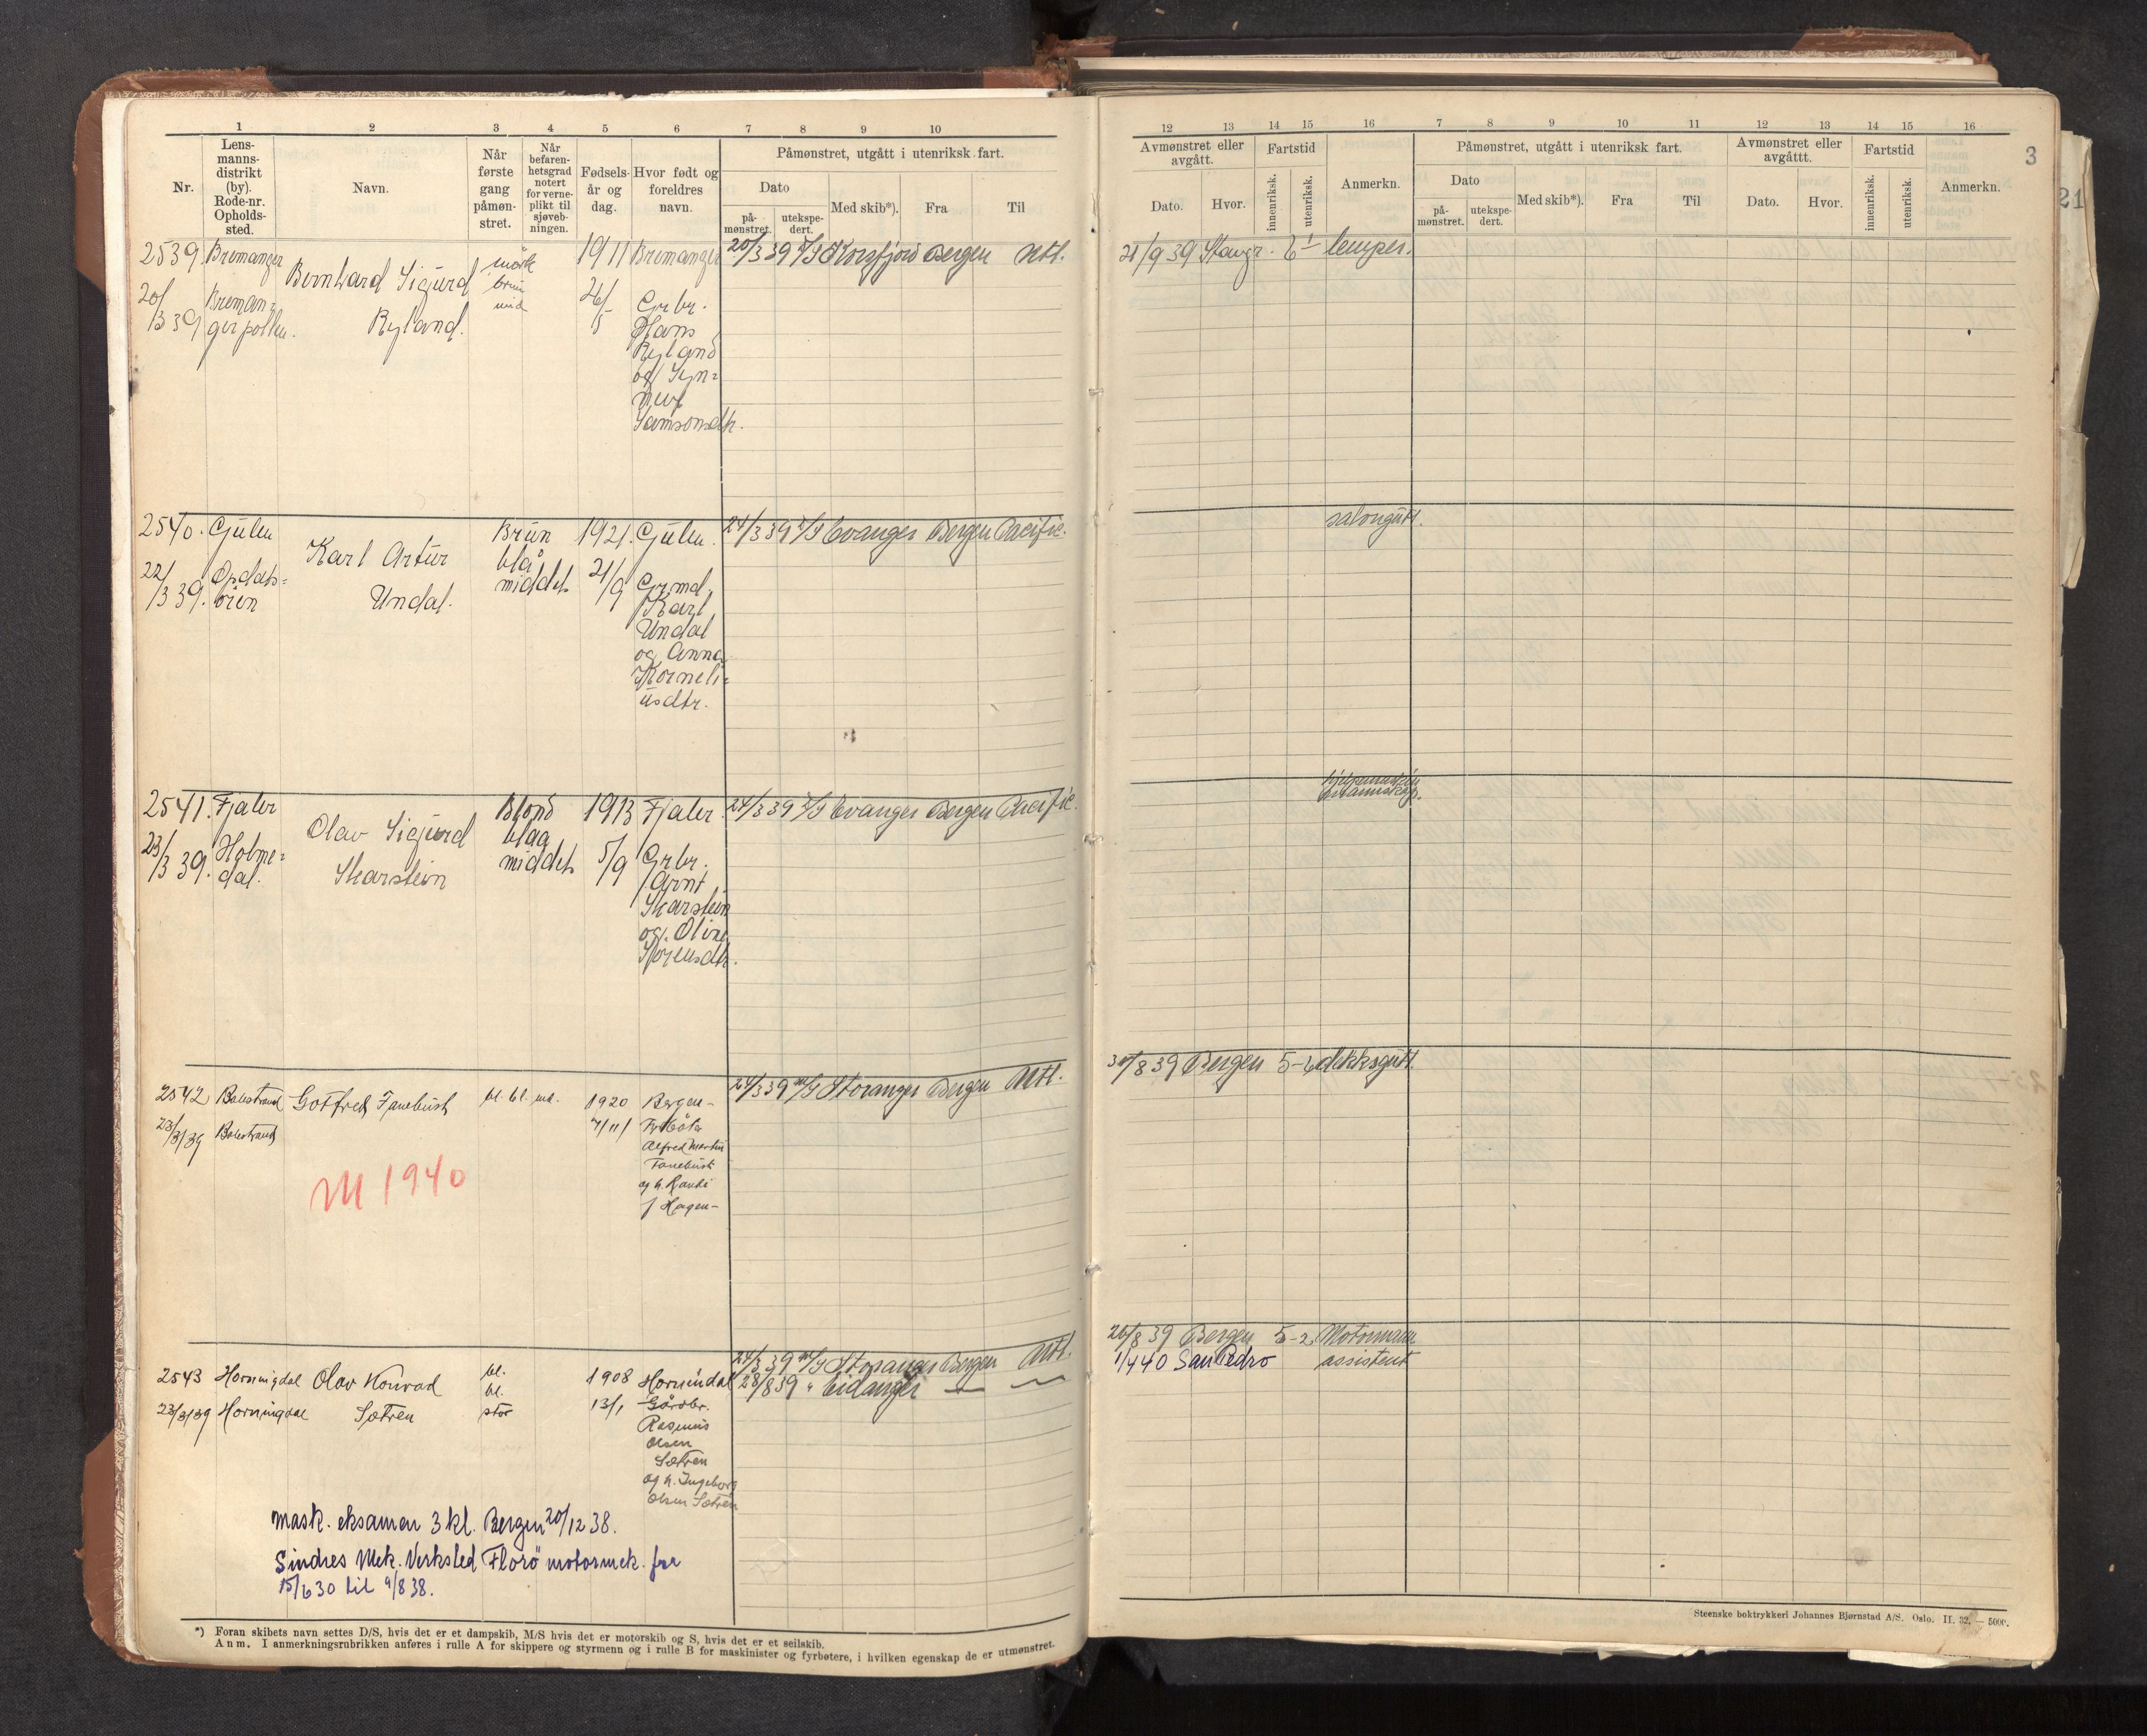 1 2 3 4 5 6 7 8 9 10
Nr.
Lens-
manns-
distrikt
(by).
Rode-nr.
Opholds-
sted.
Navn.
Når
første
gang
påmøn-
stret.
Når
befaren-
hetsgrad
notert
for verne-
plikt til
sjøveb-
ningen.
Fødsels-
år og
dag.
Hvor født og
foreldres
navn.
Påmønstret, utgått i utenriksk fart.
Dato
på-
mønstret.
utekspe-
dert.
Med skib*).
Fra
Til
2539 Bremanger
20/3 39 Breman=
gerpollen.
Bernhard Sigurd
Ryland.
mörk
brun
mid
1911
26/5
Bremanger
Grbr.
Hans
Ryland
og Syn=
nuv
Samsonsdtr.
20/3 39 Korsfjord Bergen Utl.
2540. Gulen
22/3 39. Opdals=
ören
Karl Artur
Undal.
Brun
blå
middels
1921.
21/9
Gulen.
Grmd.
Karl
Undal
og Anna
Korneli=
usdtr.
24/3 39 Evanger Bergen Pacific.
2541. Fjaler
23/3 39. Holme=
dal.
Olav Sigurd
Skarstein
Blond
blaa
middels
1913
5/9
Fjaler
Grbr.
Arnt
Skarstein
og Oline
Sörensdtr.
24/3 39 Evanger Bergen Pacific.
2542 Balestrand Gotfred Tanebust bl. bl. md.
23/3/39 Balestrand
1920
7/11
Bergen-
Fyrböter
Alfred Martin
Tanebust
og h. Randi
f Hagen-
24/3 39 M/S Storanger Bergen Utl.
M 1940
2543 Hornigdal Olav Konrad
23/3/39 Horningdal Sætren
bl.
bl.
stor
1908
13/1
Hornindal
Gårdbr.
Rasmus
Olsen
Sætren
og h. Ingeborg
Olsen Sætren
24/3 39 M/S Storanger Bergen Utl.
28/8 39 " Eidanger — —
Mask. eksamen 3 kl. Bergen 20/12 38.
Sindres Mek. Verksted Florö motormek. fra
15/6 30 til 9/8 38.
*) Foran skibets navn settes D/S, hvis det er et dampskib, M/S hvis det er motorskib og S, hvis det er et seilskib.
Anm. I anmerkningsrubrikken anføres i rulle A for skippere og styrmenn og i rulle B for maskinister og fyrbøtere, i hvilken egenskap de er utmønstret.
12 13 14 15 16 7 8 9 10 11 12 13 14 15 16
Avmønstret eller
avgått.
Dato.
Hvor.
Fartstid
innenriksk.
utenriksk.
Anmerkn.
Påmønstret, utgått i utenriksk fart.
Dato
på-
mønstret.
utekspe-
dert.
Med skib*).
Fra
Til
Avmønstret eller
avgåttt.
Dato.
Hvor.
Fartstid
innenriksk.
utenriksk.
Anmerkn.
3
21
21/9 39 Stavgr. 6 1 lemper.
salongutt.
30/8 39 Bergen 5-6 dekksgutt.
26/8 39 Bergen 5-2 Motormann
1/4 40 San Pedro assistent
Steenske boktrykkeri Johannes Bjørnstad A/S. Oslo. II. 32. — 5000.